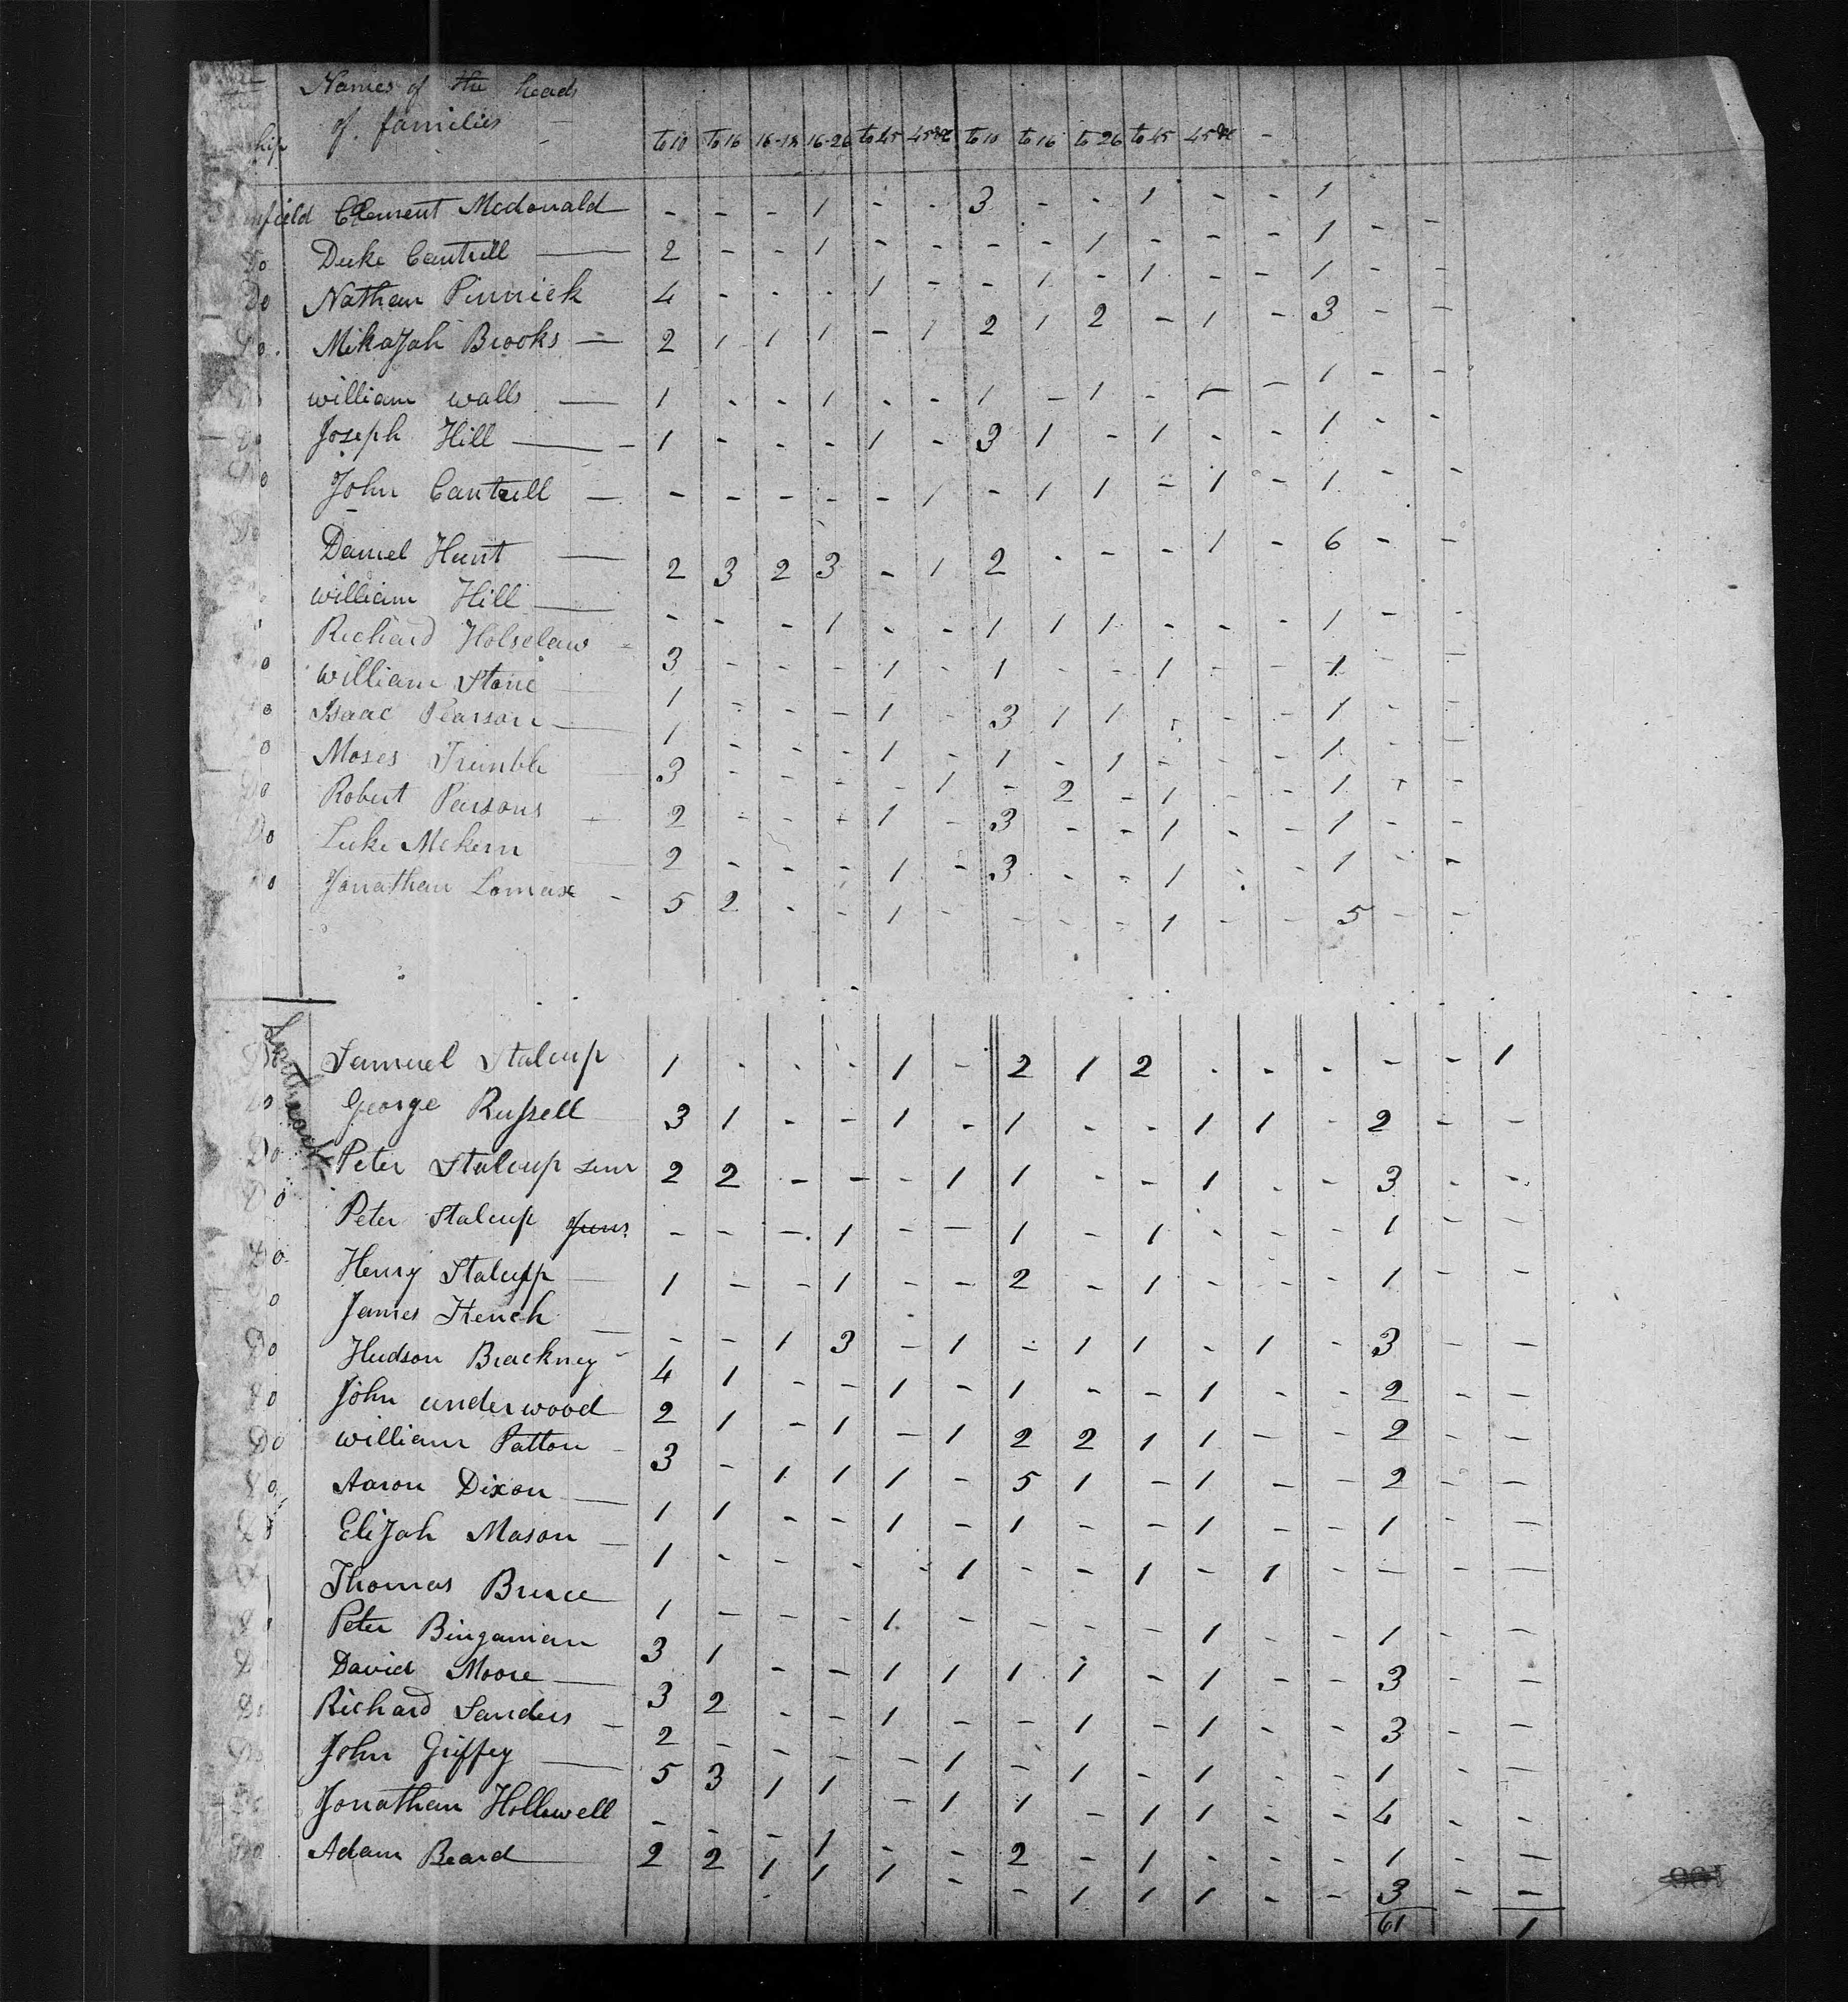 Names of the heads
of families -
ship to 10 to 16 16-18 16-26 to 45 45 &c to 10 to 16 to 26 to 45 45 &c -
nfield Clement Mcdonald - - - 1 - - 3 - - 1 - - 1
Do Duke Cantrill 2 - - 1 - - - - 1 - - - 1 - -
Do Nathan Pinnick 4 - - - 1 - - 1 - 1 - - 1 - -
Do. MikaJah Brooks 2 1 1 1 - 1 2 1 2 - 1 - 3 - -
Do william walls 1 - - 1 - - 1 - 1 - - - 1 - -
Do Joseph Hill 1 - - - 1 - 3 1 - 1 - - 1 - -
Do John Cantrell - - - - - 1 - 1 1 - 1 - 1 - -
Do Daniel Hunt 2 3 2 3 - 1 2 - - - 1 - 6 - -
william Hill - - - 1 - - 1 1 1 - - - 1 - -
Richard Holselaw 3 - - - 1 - 1 - - 1 - - 1 - -
o william Stone 1 - - - 1 - 3 1 1 - - - 1 - -
o Isaac Pearson 1 - - - 1 - 1 - 1 - - - 1 - -
o Moses Trimble 3 - - - - 1 - 2 - 1 - - 1 - -
Do Robert Parsons 2 - - - 1 - 3 - - 1 - - 1 - -
Do Luke Mckern 2 - - - 1 - 3 - - 1 - - 1 - -
Do Jonathan Lomax 5 2 - - 1 - - - - 1 - - 5 - -
Samuel Stalcup 1 - - - 1 - 2 1 2 - - - - - 1
Do George Russell 3 1 - - 1 - 1 - - 1 1 - 2 - -
Do Peter Stalcup senr 2 2 - - - 1 1 - - 1 - - 3 - -
Do Peter Stalcup Junr - - - 1 - - 1 - 1 - - - 1 - -
Do Henry Stalcup 1 - - 1 - - 2 - 1 - - - 1 - -
o James French - - 1 3 - 1 - 1 1 - 1 - 3 - -
Do Hudson Brackney 4 1 - - 1 - 1 - - 1 - - 2 - -
Do John underwood 2 1 - 1 - 1 2 2 1 1 - - 2 - -
Do william Patton 3 - 1 1 1 - 5 1 - 1 - - 2 - -
Do Aaron Dixon 1 1 - - 1 - 1 - - 1 - - 1 - -
Do EliJah Mason 1 - - - - 1 - - 1 - 1 - - - -
Thomas Bruce 1 - - - 1 - - - - 1 - - 1 - -
Peter Bingaman 3 1 - - 1 1 1 1 - 1 - - 3 - -
Do David Moore 3 2 - - 1 - - 1 - 1 - - 3 - -
Do Richard Sanders 2 - - - - 1 - 1 - 1 - - 1 - -
Do John Griffey 5 3 1 1 - 1 1 - 1 1 - - 4 - -
Jonathan Hollowell - - - 1 - - 2 - 1 - - - 1 - -
Do Adam Beard 2 2 1 1 1 - - 1 1 1 - - 3 - -
61 1